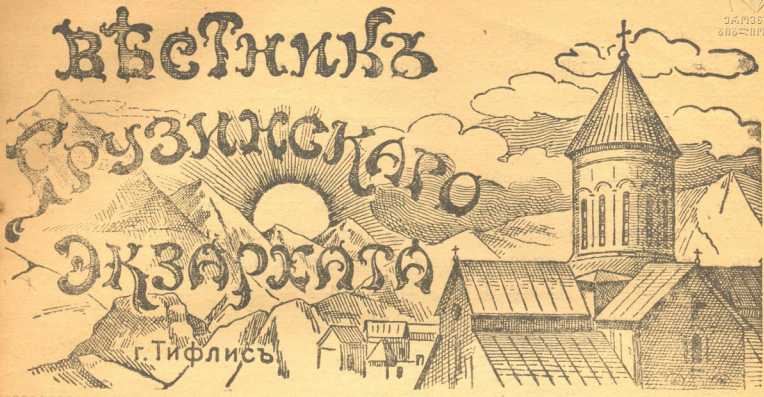 Вѣстникъ
Грузинскаго
Экзархата
г. Тифлисъ